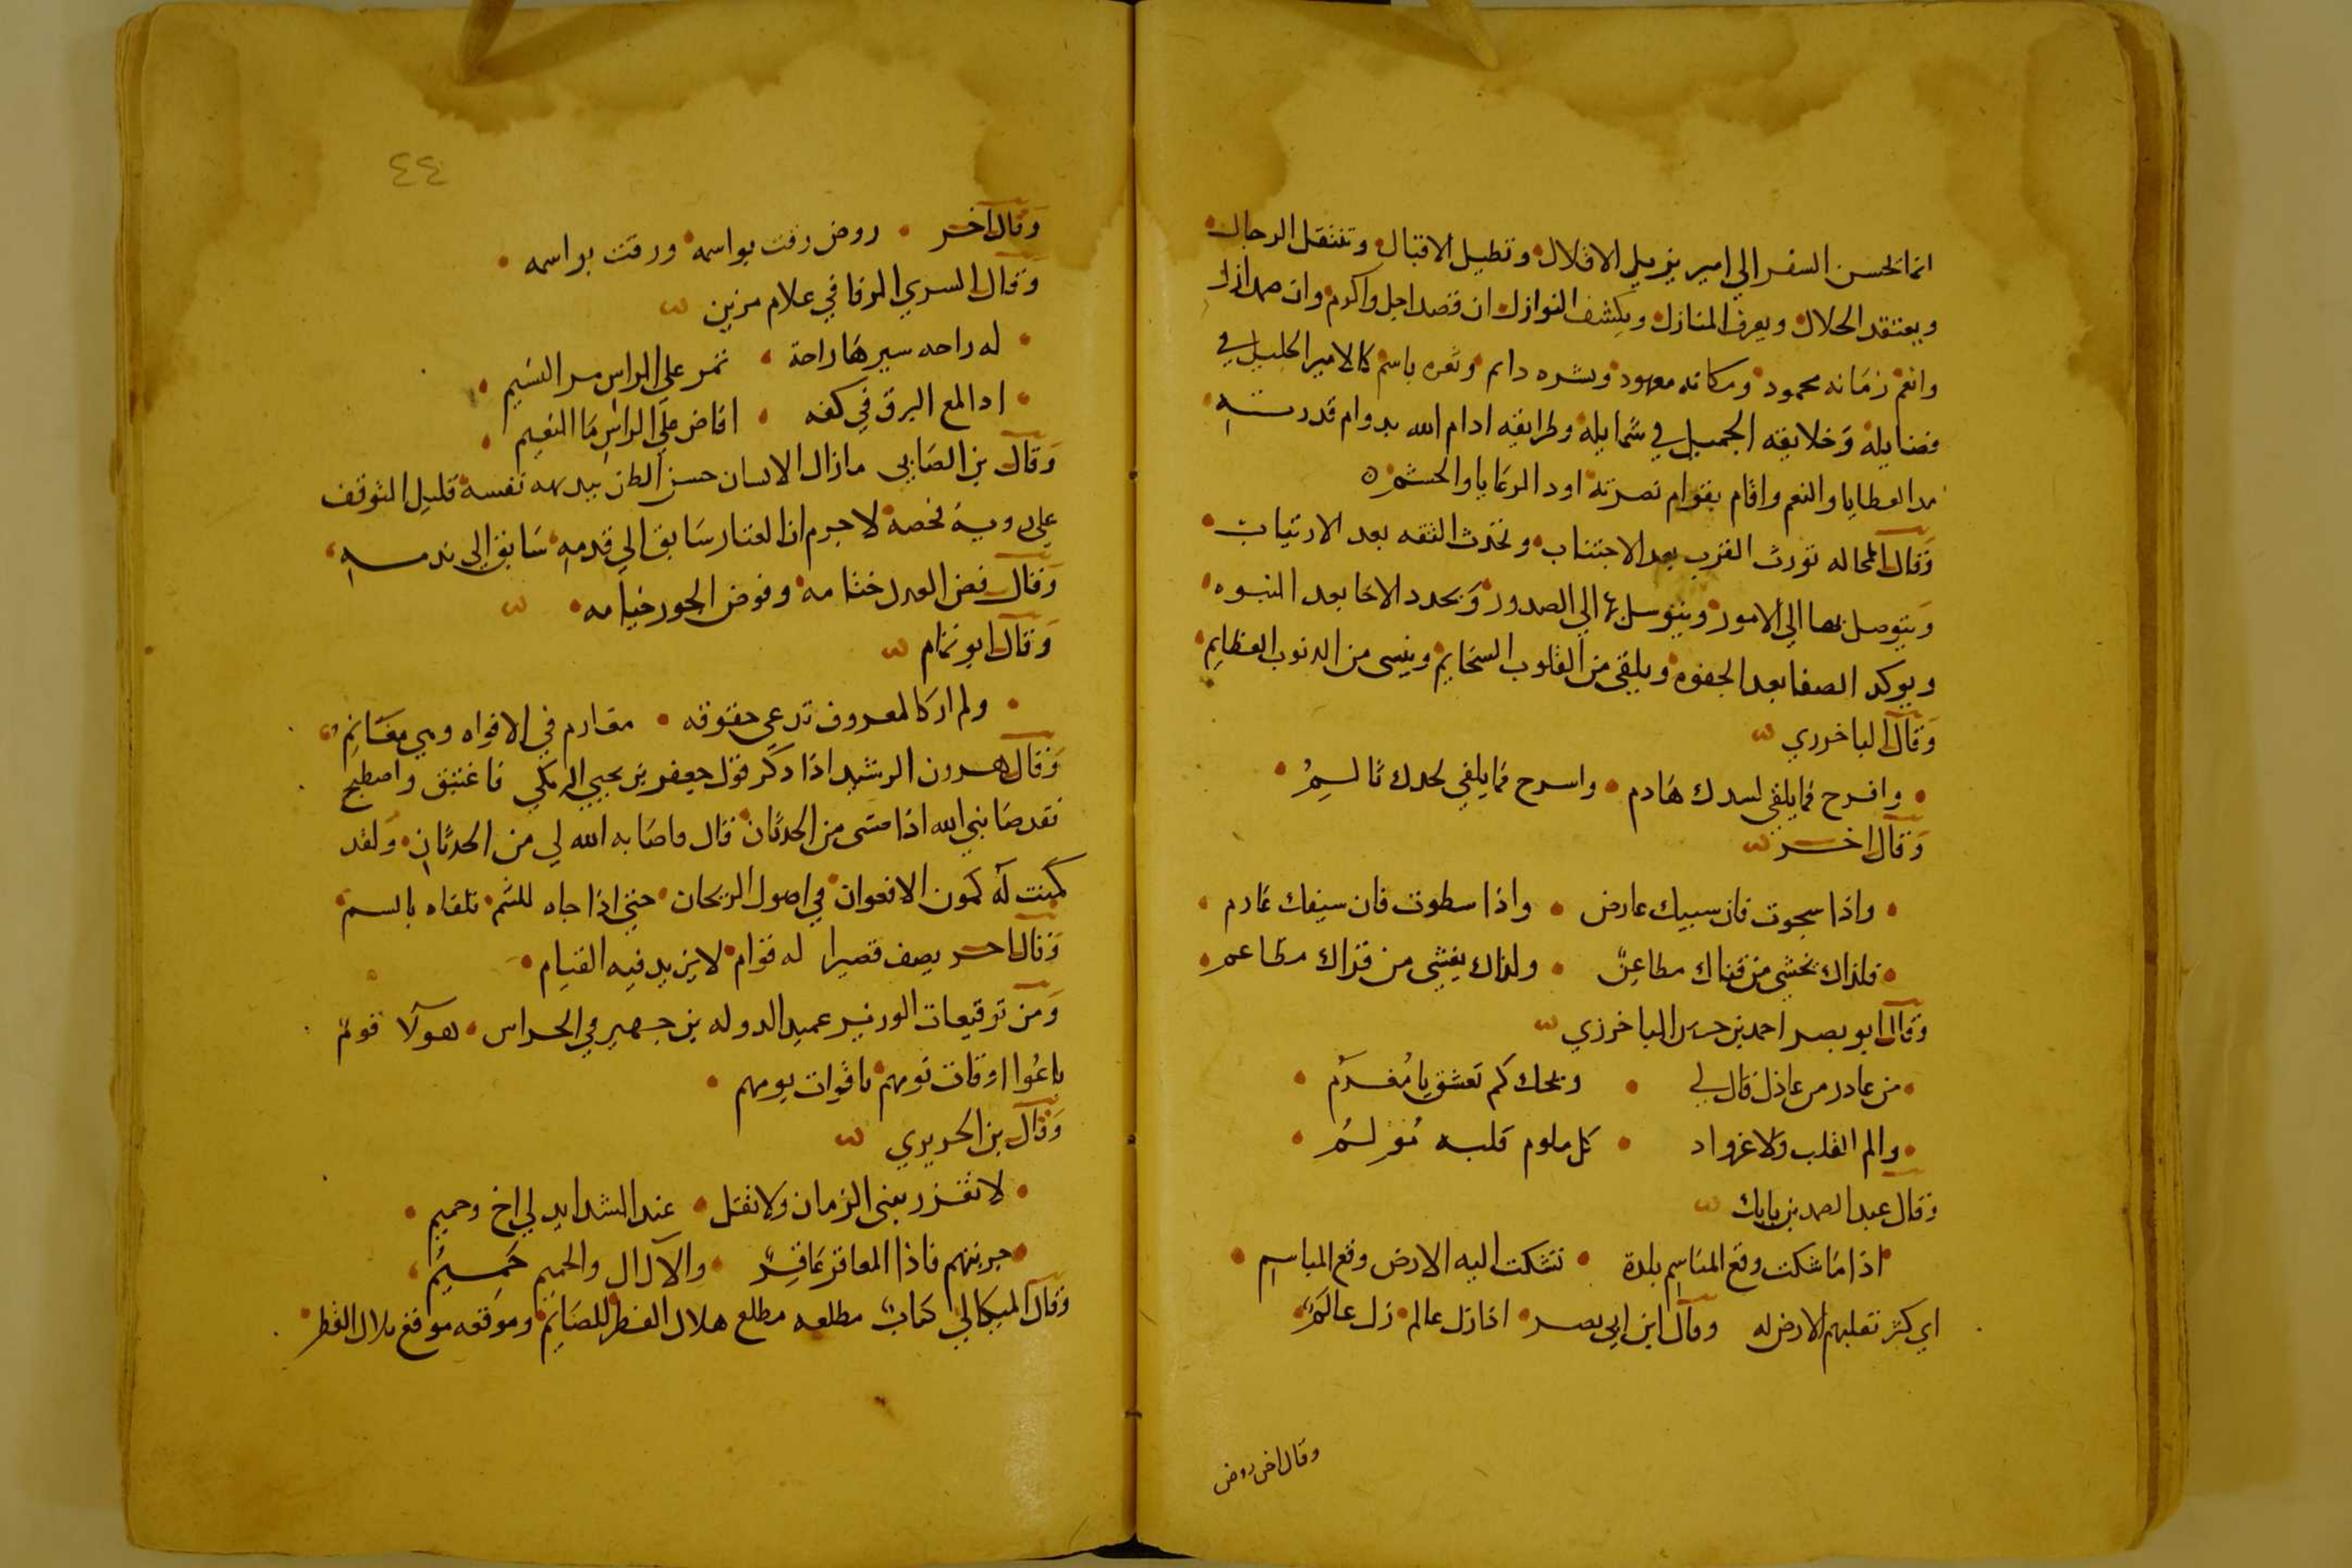 انما يحسن السفر الي امير يزيل الاقلال وتطيل الاقبال وتنتقل الرحال
ويعتقد الحلال ويعرف المنازل ويكشف النوازل ان قصد اجل واكرم وان
وانعم زمانه محمود ومكانه معهود وبشره دايم وثغره باسم كالامير الجليل في
فضايله وخلايقه الجميل في شمايله وطرايقه ادام الله بدوام قدرته
مد العطايا والنعم واقام بقوام نصرته اود الرعايا والحشم
وقال تورث القرب بعد الاجتناب وتحدث الثقه بعد الارتياب
ويتوصل بها الي الامور ويتوسل بها الي الصدور ويجدد الاخا بعد النبوه
ويوكد الصفا بعد الجفوه ويلقي من القلوب السخايم وينسي من الذنوب العظايم
وقال الباخرزي
وافرح فما يلقي لسدك هادم واسرح فما يلفي لحدك ثالم
وقال اخر
واذا سجوت فان سيبك عارض واذا سطوت فان سيفك عارم
فلذاك يخشي من قناك مطاعن ولذاك يغشي من قراك مطاعم
وقال ابو نصر احمد بن حسن الباخرزي
من عاذر من عاذل قال لي ويحك كم تعشق يا مغرم
والم القلب ولا غرو اذ كل ملوم قلبه مؤلم
وقال عبد الصمد بن بابك
اذا ما شكت وقع المناسم بلدة تشكت اليه الارض وقع المباسم
اي كثر تقبلهم الارض له وقال ابن ابي نصر اذا زل عالم زل عالم
وقال اخر روض
٤٤
وقال اخر روض رقت بواسمه ورقت بواسمه
وقال السري الرفا في غلام مزين
له راحه سيرها راحة تمر علي الراس مر النسيم
اذا لمع البرق في كفه افاض علي الراس ما النعيم
وقال بن الصابي مازال الانسان حسن الظن ببديهه نفسه قليل التوقف
علي روية تخصه لا جرم ان العثار سابق الي قدمه سابق الي ندمه
وقال فض العدل ختامه وقوض الجور خيامه
وقال ابو تمام
ولم ار كالمعروف تدعي حقوقه مغارم في الاقواه وهي مغانم
وقال هرون الرشيد اذا ذكر قول جعفر بن يحيي البرمكي فاغتبق واصطبح
فقد صانني الله اذا مت من الحدثان قال ما صانه الله لي من الحدثان ولقد
كمنت له كمون الافعوان في اصول الريحان حتي اذا جاه للشم تلقاه بالسم
وقال اخر يصف قصيرا له قوام لا يزيد فيه القيام
ومن توقيعات الوزير عميد الدوله بن جهير في الحراس هولا قوم
باعوا اوقات نومهم باقوات يومهم
وقال بن الحريري
لا تغترر ببني الزمان ولا تقل عند الشدايد لي اخ وحميم
جربتهم فاذا المعاقر عاقر والآل آل والحميم حميم
وقال الميكالي كتاب مطلعه مطلع هلال الفطر للصايم وموقعه موقع بلال القطر